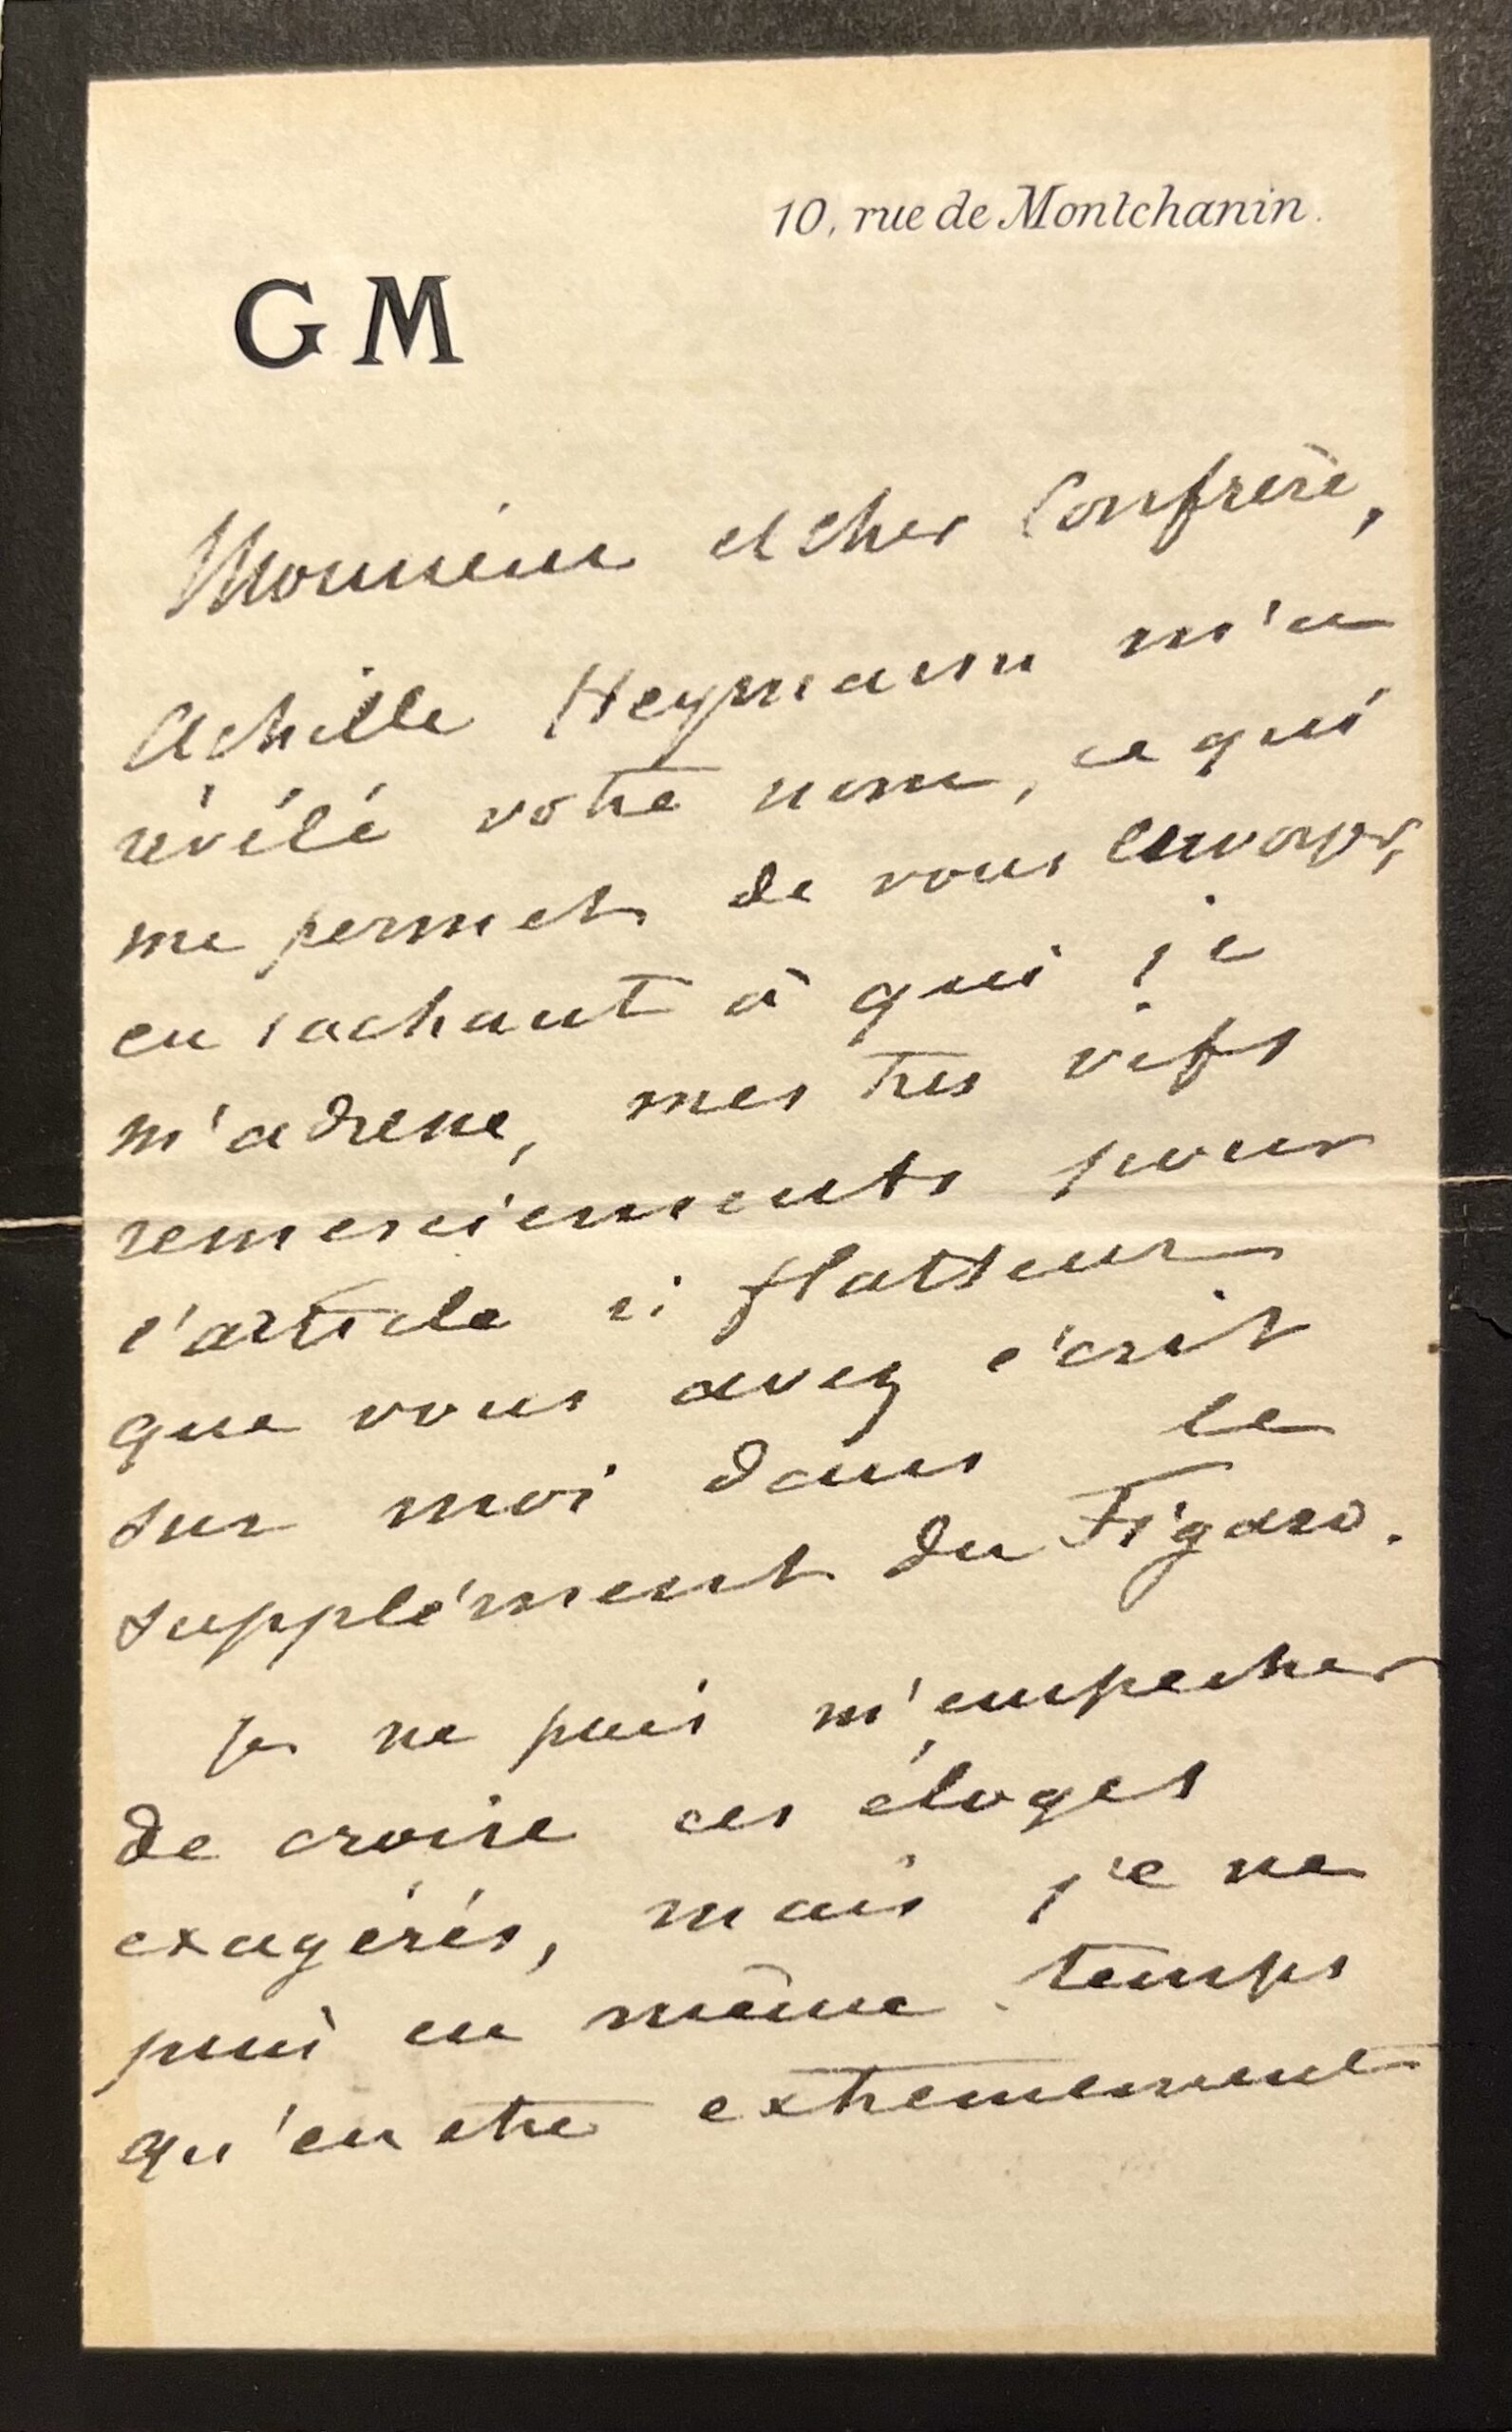 10, rue de Montchanin.
G M
Monsieur et cher Confrère,
Achille Heymann m'a
révélé votre nom, ce qui
me permet de vous envoyer,
en sachant à qui je
m'adresse, mes très vifs
remerciements pour
l'article si flatteur
que vous avez écrit
sur moi dans le
supplément du Figaro.
Je ne puis m'empecher
de croire ces éloges
exagérés, mais je ne
puis en même temps
qu'en etre extremement